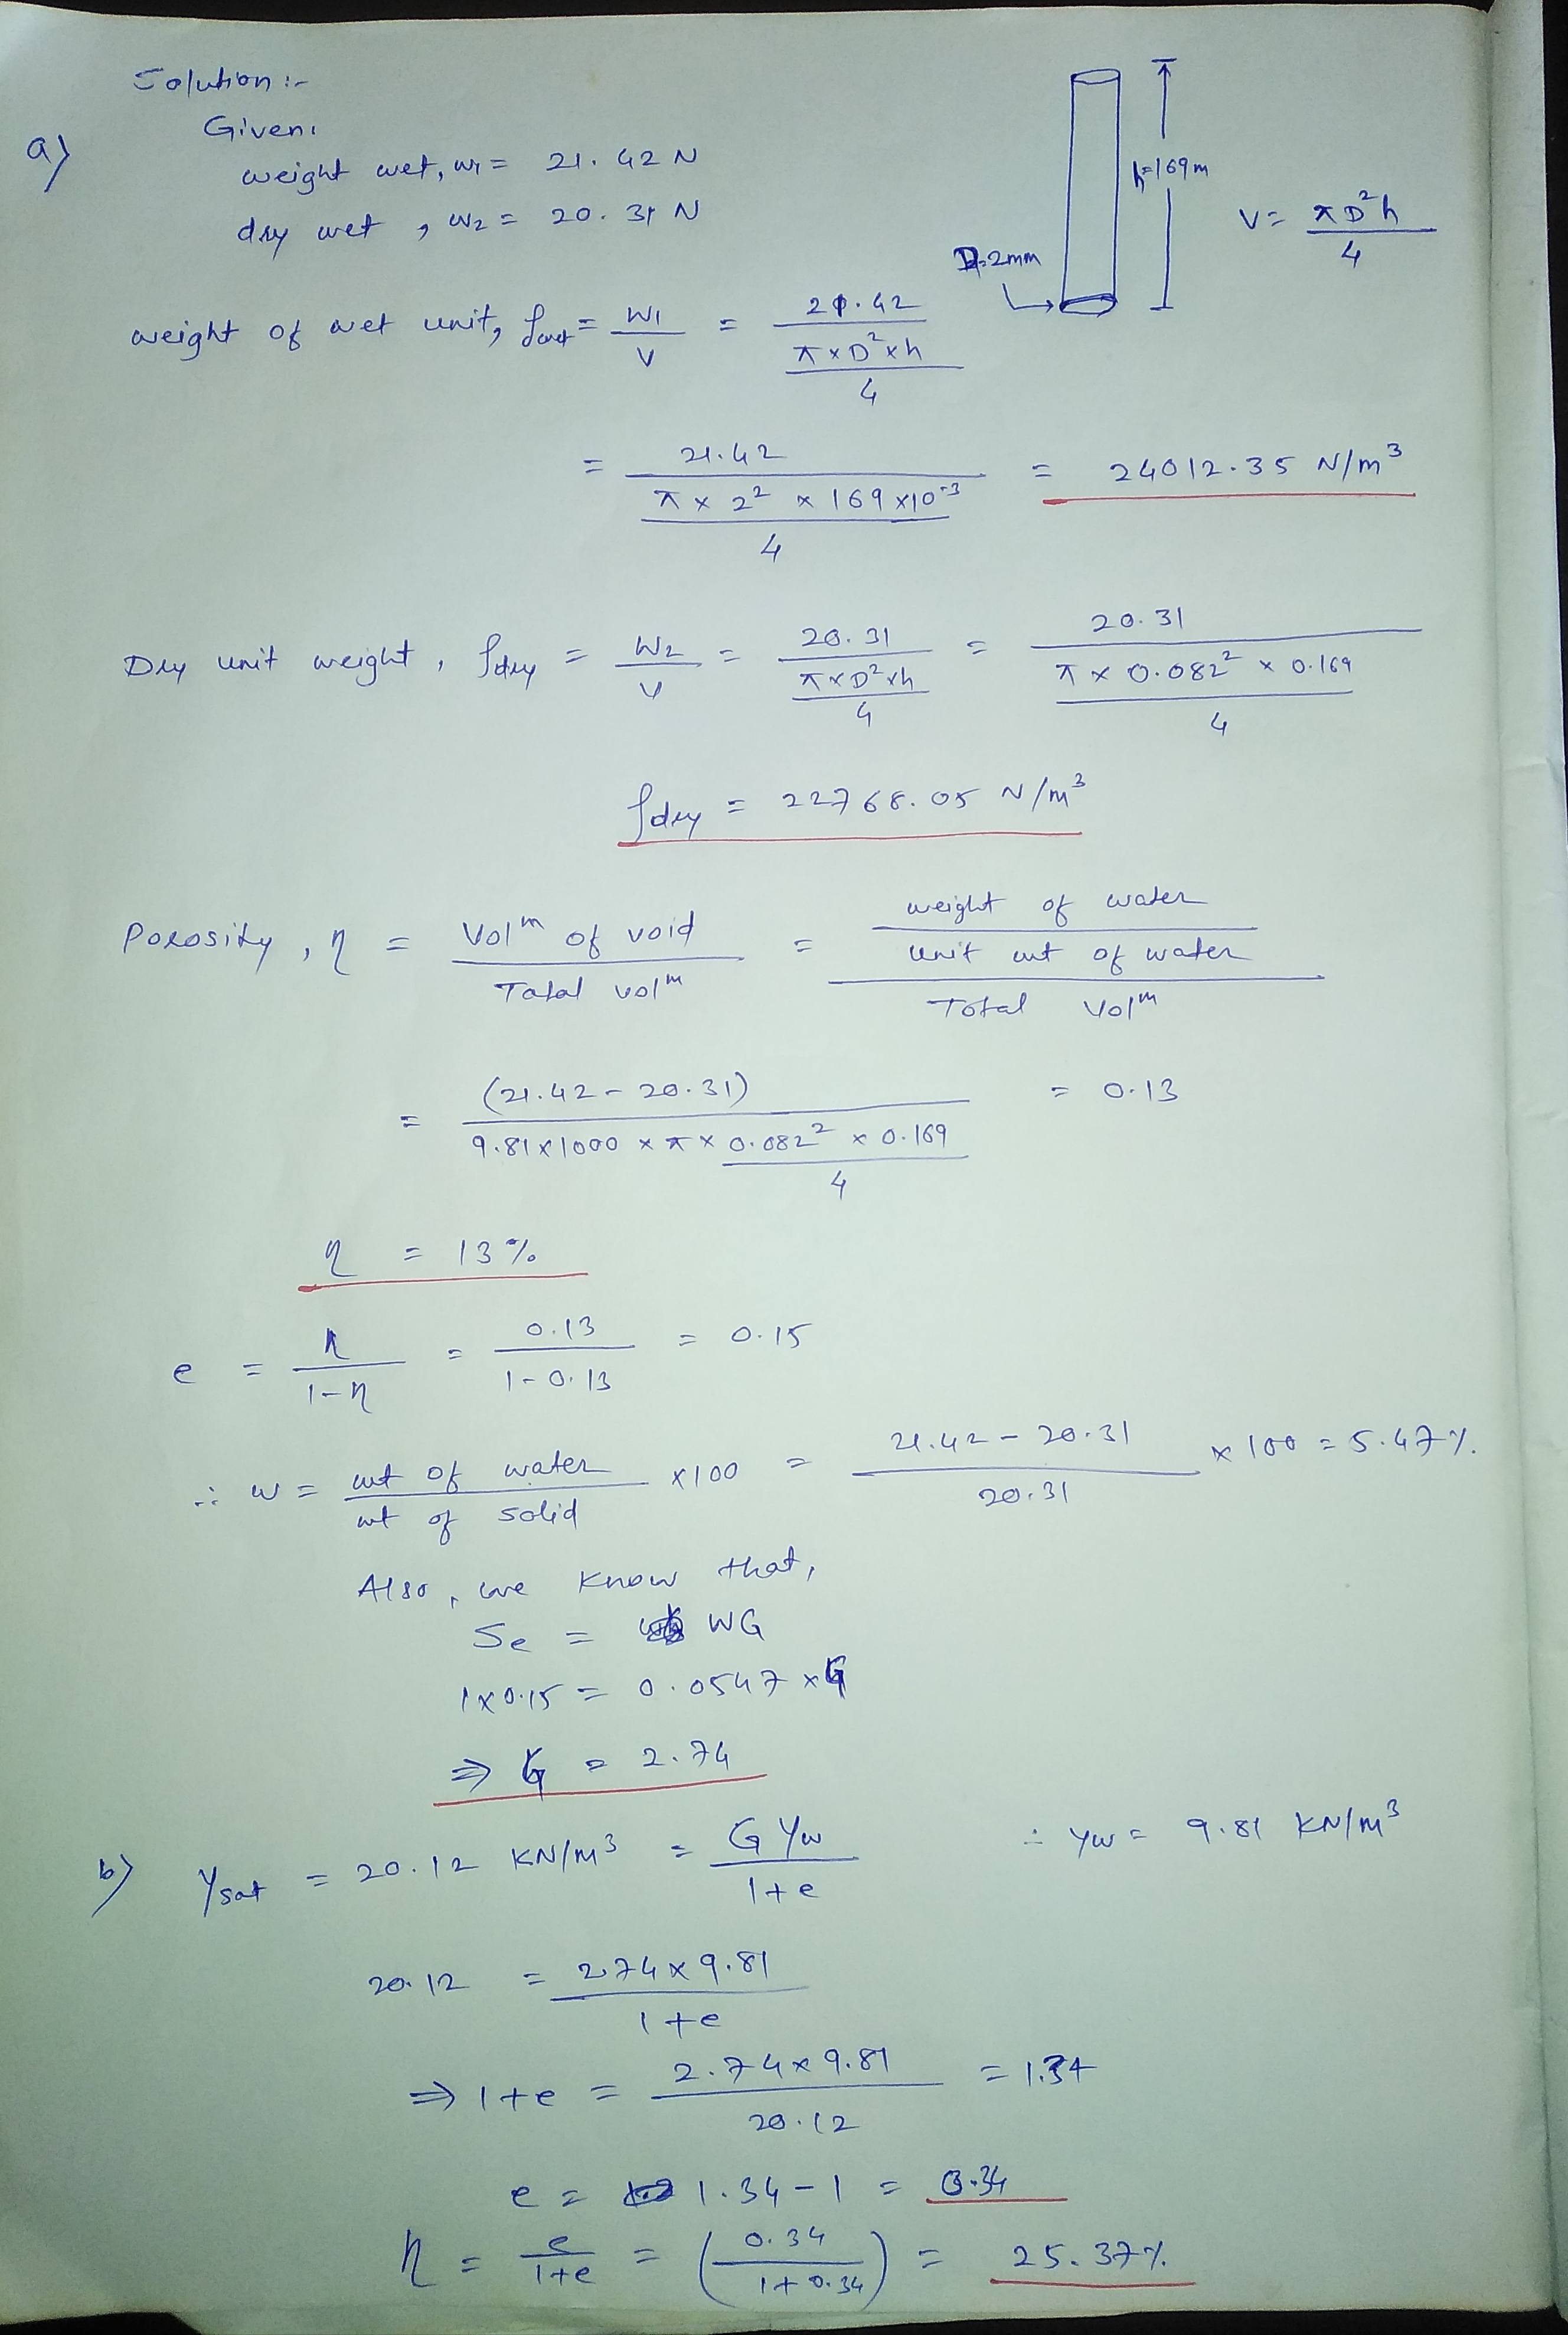 Solution :-
a) Given:
weight wet, w1 = 21.42 N
dry wet , w2 = 20.31 N
h=169m
D=2mm
V = πD²h / 4
weight of wet unit, ρwet = W1 / V = 21.42 / (π×D²×h / 4)
= 21.42 / (π × 2² × 169×10⁻³ / 4) = 24012.35 N/m³
Dry unit weight, ρdry = W2 / V = 20.31 / (π×D²×h / 4) = 20.31 / (π × 0.082² × 0.169 / 4)
ρdry = 22768.05 N/m³
Porosity, η = Volm of void / Total volm = (weight of water / unit wt of water) / Total Volm
= (21.42 - 20.31) / (9.81×1000 × π × 0.082² × 0.169 / 4) = 0.13
η = 13%
e = η / (1-η) = 0.13 / (1-0.13) = 0.15
∴ w = wt of water / wt of solid ×100 = (21.42 - 20.31) / 20.31 × 100 = 5.47%.
Also, we know that,
Se = WG
1×0.15 = 0.0547 × G
⇒ G = 2.74
b) γsat = 20.12 KN/m³ = G γw / (1+e) ∴ γw = 9.81 KN/m³
20.12 = 2.74×9.81 / (1+e)
⇒ 1+e = 2.74×9.81 / 20.12 = 1.34
e = 1.34-1 = 0.34
η = e / (1+e) = (0.34 / (1+0.34)) = 25.37%